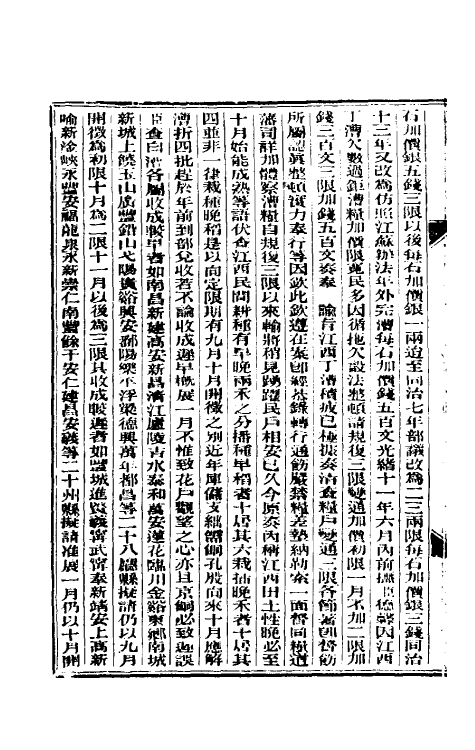 石加價銀五錢三限以後每石加價銀一兩迨至同治七年部議改爲二三兩限每石加價銀三錢同治
十三年又改爲仿照江蘇辦法年外完漕每石加價錢五百文光緒十一年六月內前撫臣德馨因江西
丁漕欠數過鉅漕糧加價限寬民多因循拖欠設法整頓請規復三限變通加價初限一月不加二限加
錢三百文三限加錢五百文奏奉　諭旨江西丁漕積
所屬認眞整頓實力奉行等因欽此欽遵在案
藩司詳加體察漕糧自規復三限以來輸將稍見踴躍民戶相安已久今原奏內稱江西田土性晚必至
十月始能成熟等語伏查江西民間耕種有早晚兩禾之分播種早稻者十居其六栽插晚禾者十居其
四並非一律栽種晚稻是以向定限期有九月十月開徵之別近年庫儲支絀羅掘孔殷向來十月應解
漕折四批趕於年前到部兌收若不論收成遲早槪展一月不惟致花戶觀望之心亦且京餉必致遲誤
臣查白漕各屬收成較早者如南昌新建高安新昌淸江廬陵吉水泰和萬安蓮花臨川金谿東鄕南城
新城上饒玉山廣豐鉛山弋陽貴谿興安鄱陽樂平浮梁德興萬年都昌等二十八廳縣擬請仍以九月
開徵爲初限十月爲二限十一月以後爲三限其收成較遲者如豐城進賢義寧武寧奉新靖安上高新
喻新淦峽永豐安福龍泉永新崇仁南豐餘干安仁建昌安義等二十州縣擬請准展一月仍以十月開